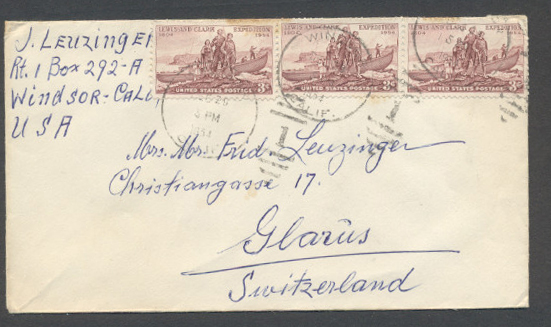 J. Leuzinger
Rt. 1 Box 292-A
Windsor-Calif
USA
LEWIS AND CLARK EXPEDITION
1804 1954
UNITED STATES POSTAGE 3¢
LEWIS AND CLARK EXPEDITION
1804 1954
UNITED STATES POSTAGE 3¢
LEWIS AND CLARK EXPEDITION
1804 1954
UNITED STATES POSTAGE 3¢
WIN
CALIF.
PM
Mrs. Mr. Frid. Leuzinger
Christiangasse 17.
Glarus
Switzerland